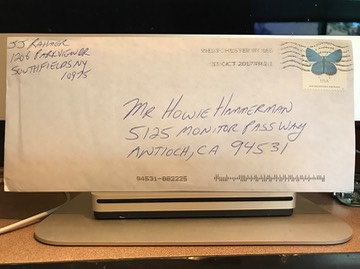 JJ RAINER
1206 PARKVIEW DR
SOUTHFIELDS NY
10975
WESTCHESTER NY
OCT 2017
USA
MR HOWIE HAMMERMAN
5125 MONITOR PASS WAY
ANTIOCH, CA 94531
94531-882225